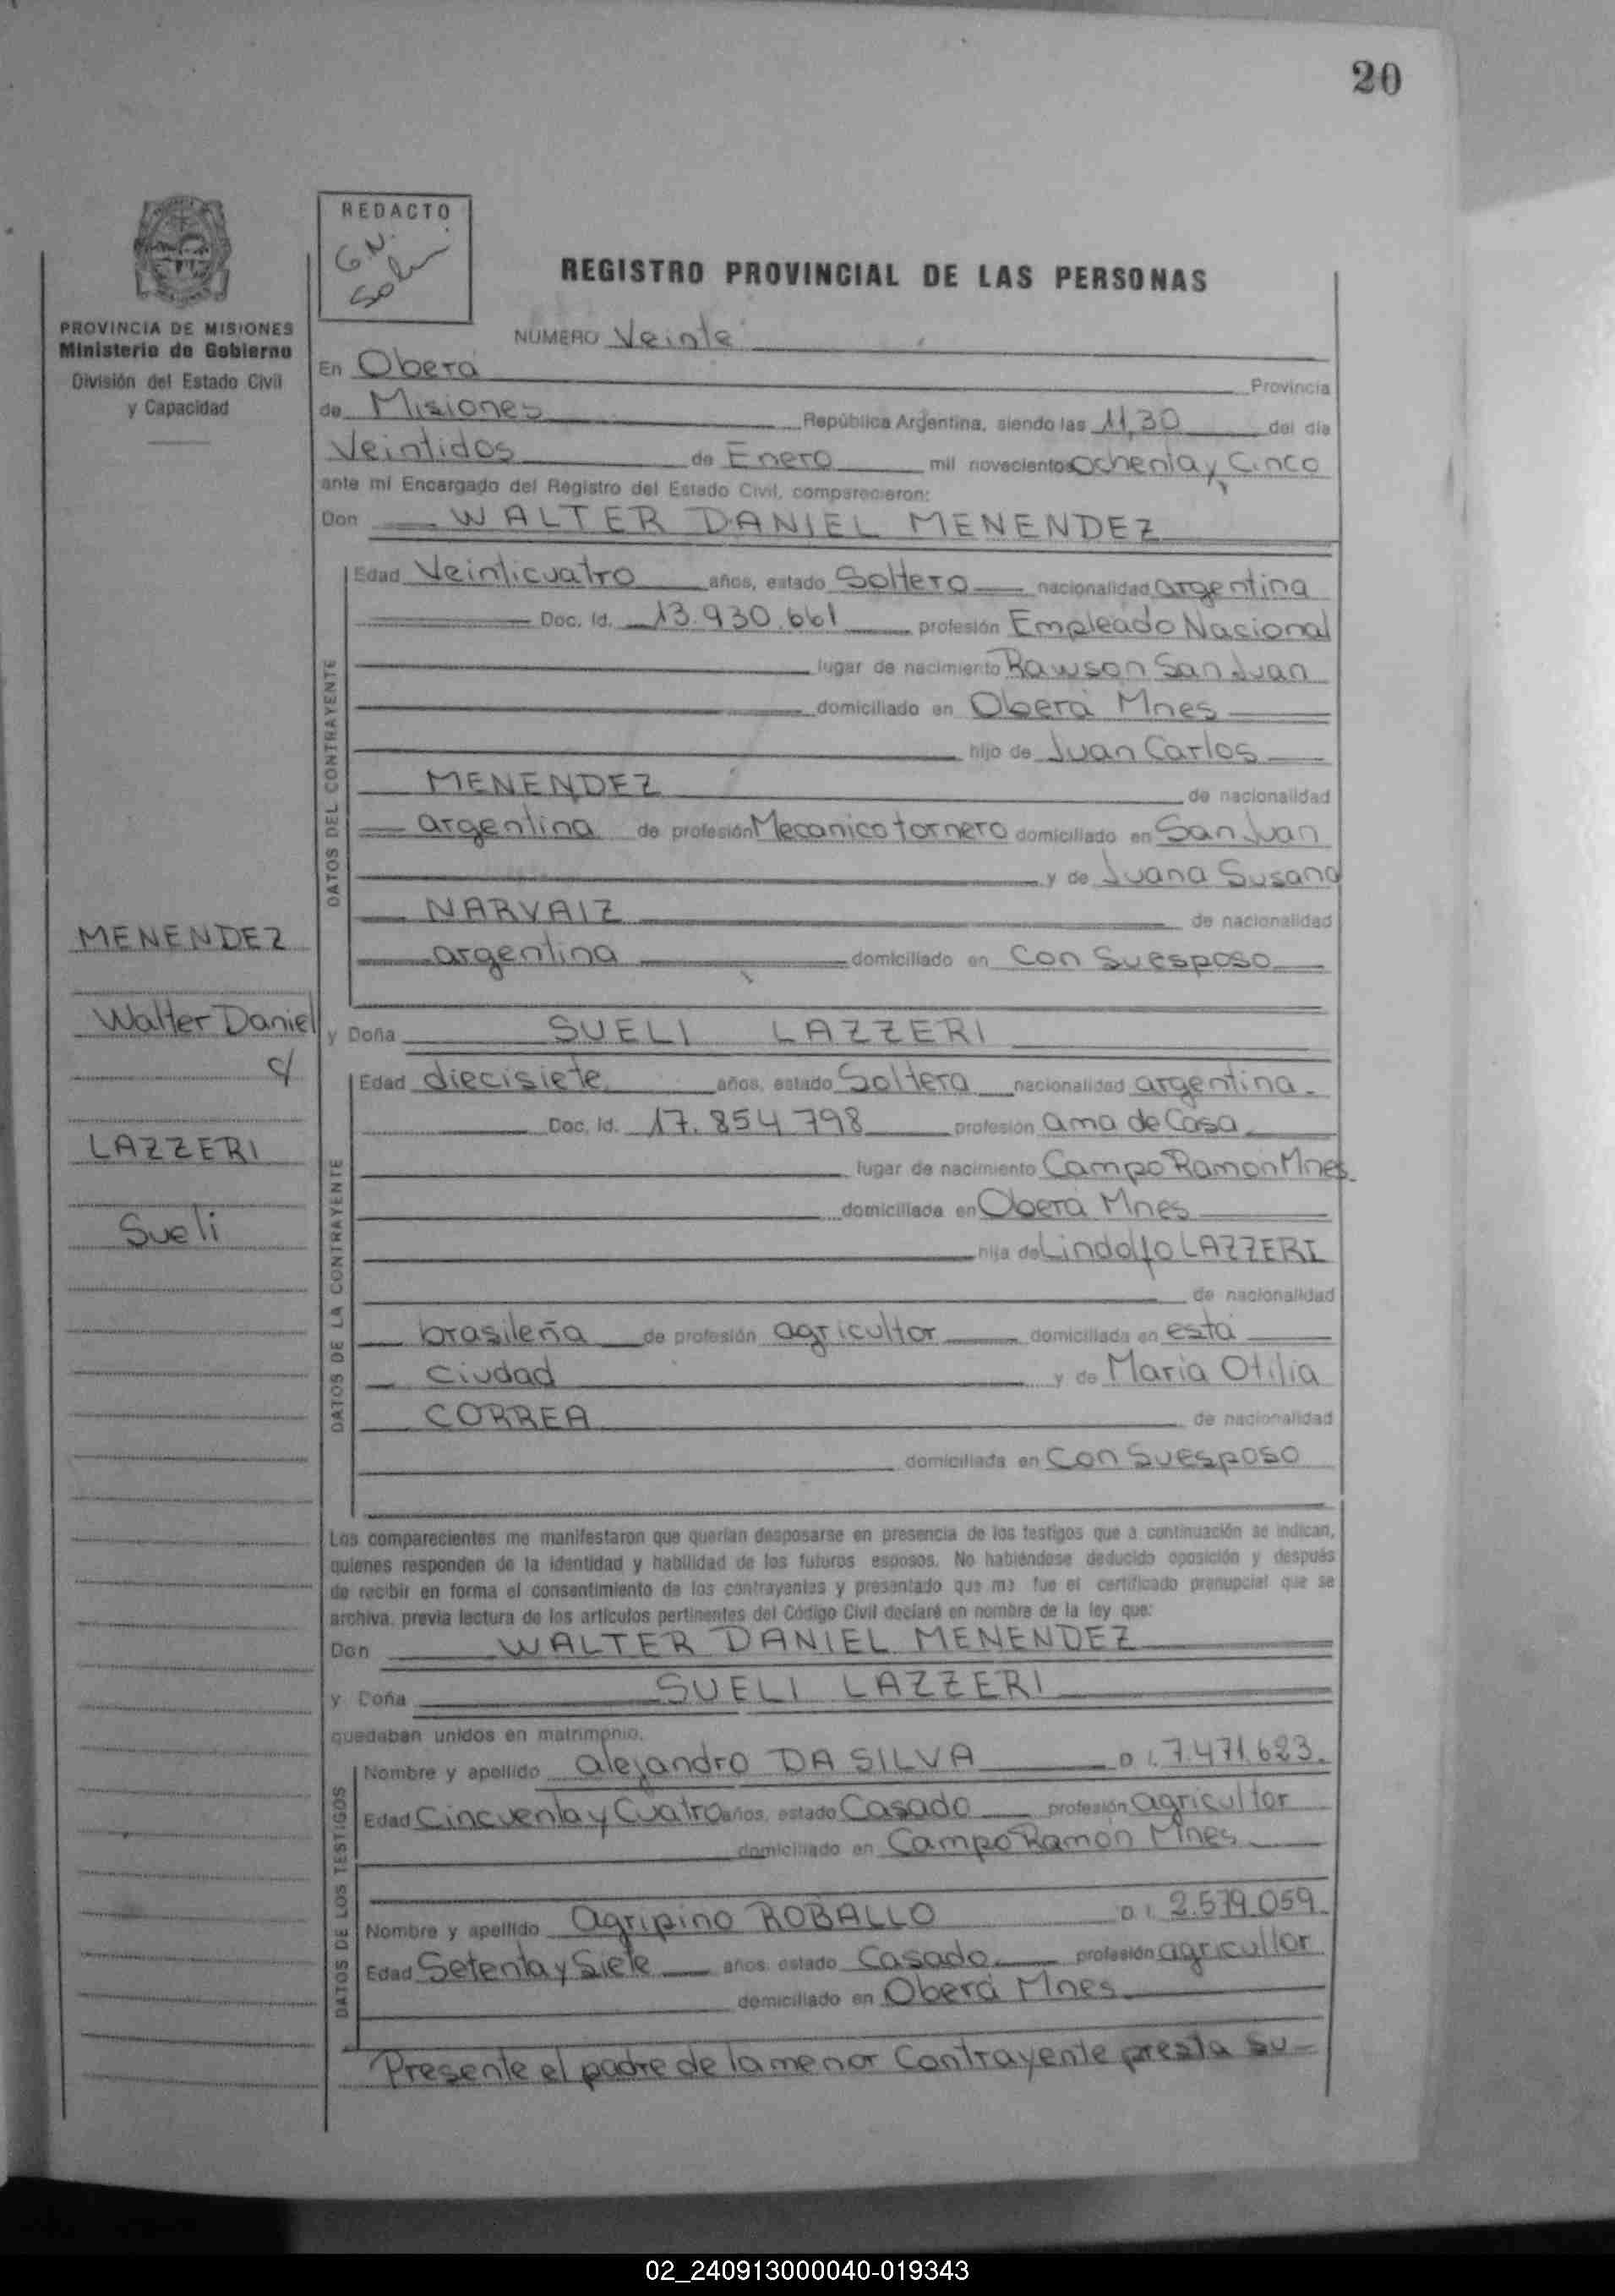 20
REDACTO
G.N.
REGISTRO PROVINCIAL DE LAS PERSONAS
PROVINCIA DE MISIONES
Ministerio de Gobierno
División del Estado Civil
y Capacidad
NUMERO Veinte
En Oberá Provincia
de Misiones República Argentina, siendo las 11,30 del día
Veintidos de Enero mil novecientos ochenta y Cinco
ante mi Encargado del Registro del Estado Civil, comparecieron:
Don WALTER DANIEL MENENDEZ
DATOS DEL CONTRAYENTE
Edad Veinticuatro años, estado Soltero nacionalidad argentina
Doc. Id. 13.930.661 profesión Empleado Nacional
lugar de nacimiento Rawson San Juan
domiciliado en Oberá Mnes
hijo de Juan Carlos
MENENDEZ de nacionalidad
argentina de profesión Mecanico tornero domiciliado en San Juan
y de Juana Susana
NARVAIZ de nacionalidad
argentina domiciliado en Con Su esposo
MENENDEZ
Walter Daniel
c/
LAZZERI
Sueli
y Doña SUELI LAZZERI
DATOS DE LA CONTRAYENTE
Edad diecisiete años, estado Soltera nacionalidad argentina.
Doc. Id. 17.854798 profesión ama de Casa
lugar de nacimiento Campo Ramon Mnes.
domiciliada en Oberá Mnes
hija de Lindolfo LAZZERI
de nacionalidad
brasileña de profesión agricultor domiciliada en esta
Ciudad y de Maria Otilia
CORREA de nacionalidad
domiciliada en Con Su esposo
Los comparecientes me manifestaron que querían desposarse en presencia de los testigos que a continuación se indican,
quienes responden de la identidad y habilidad de los futuros esposos. No habiéndose deducido oposición y después
de recibir en forma el consentimiento de los contrayentes y presentado que me fue el certificado prenupcial que se
archiva, previa lectura de los artículos pertinentes del Código Civil declaré en nombre de la ley que:
Don WALTER DANIEL MENENDEZ
y Doña SUELI LAZZERI
quedaban unidos en matrimonio.
DATOS DE LOS TESTIGOS
Nombre y apellido alejandro DA SILVA D I. 7.471.623.
Edad Cincuenta y Cuatro años, estado Casado profesión agricultor
domiciliado en Campo Ramón Mnes
Nombre y apellido agripino ROBALLO D I. 2.579.059
Edad Setenta y Siete años estado Casado profesión agricultor
domiciliado en Oberá Mnes.
Presente el padre de la menor Contrayente presta su-
02_240913000040-019343